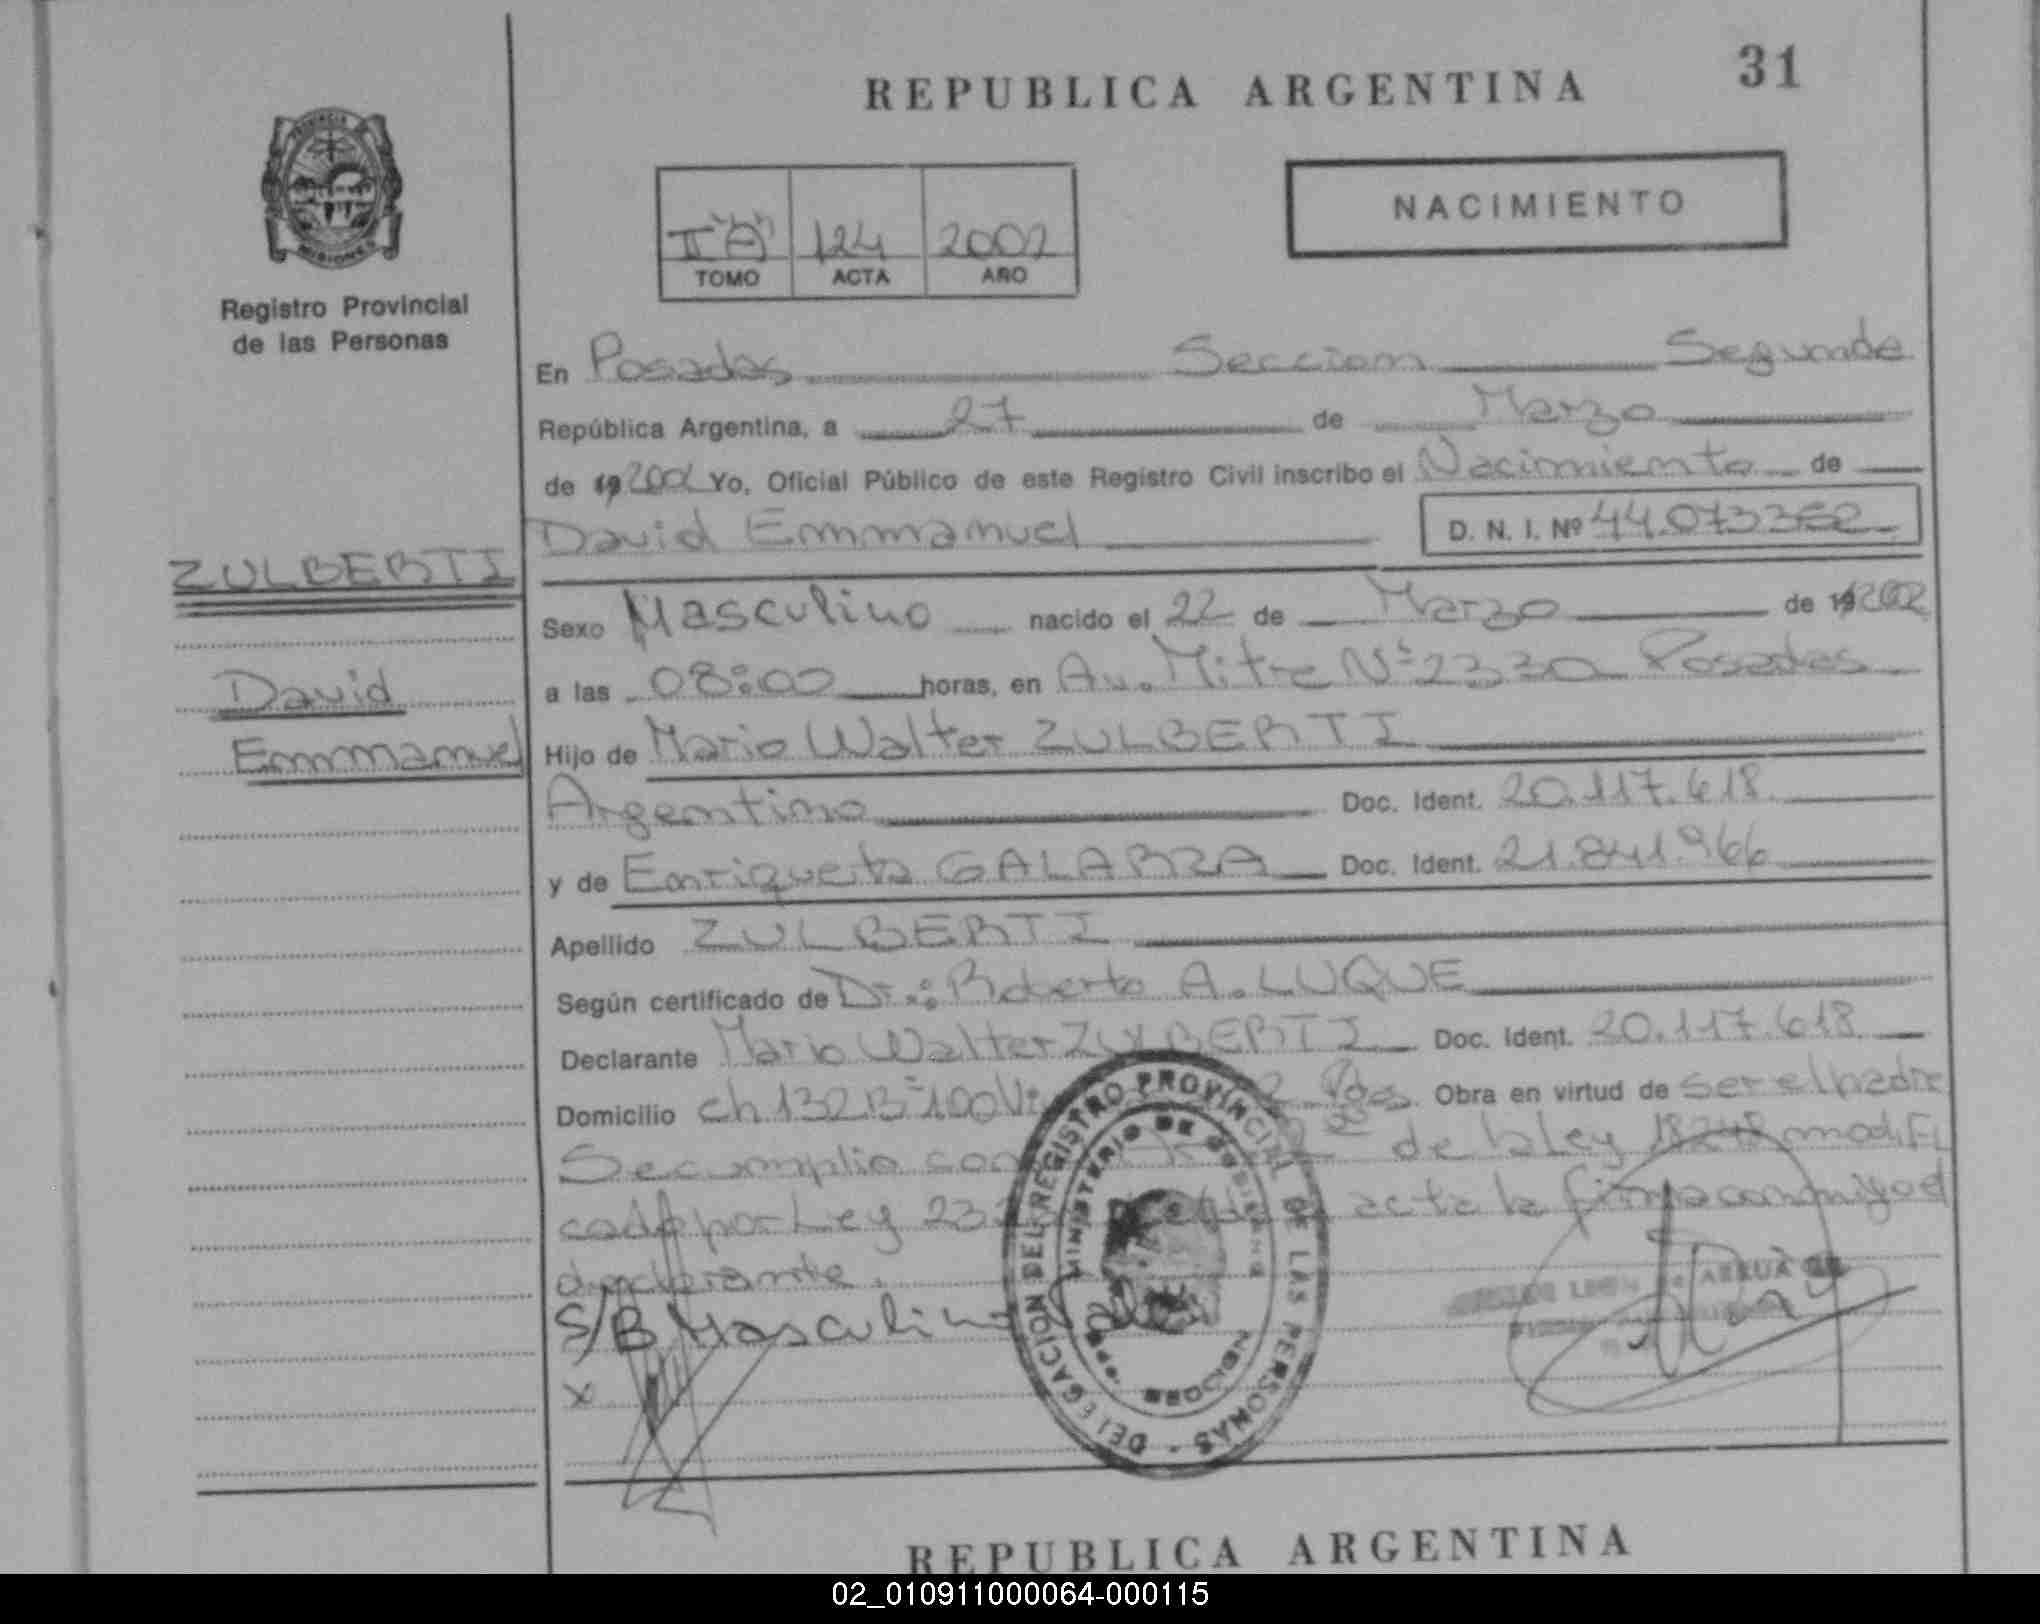 REPUBLICA ARGENTINA
31
PROVINCIA DE
MISIONES
Registro Provincial
de las Personas
II "A" 124 2002
TOMO ACTA AÑO
NACIMIENTO
En Posadas Seccion Segunda
República Argentina, a 27 de Marzo
de 19 2002 Yo, Oficial Público de este Registro Civil inscribo el Nacimiento de
David Emmanuel D. N. I. Nº 44.073.352
ZULBERTI
David
Emmanuel
Sexo Masculino nacido el 22 de Marzo de 19 2002
a las 08:00 horas, en Av. Mitre Nº 2330 Posadas
Hijo de Mario Walter ZULBERTI
Argentino Doc. Ident. 20.117.618
y de Enriqueta GALARZA Doc. Ident. 21.841.966
Apellido ZULBERTI
Según certificado de Dr.: Roberto A. LUQUE
Declarante Mario Walter ZULBERTI Doc. Ident. 20.117.618
Domicilio ch 132 B=100 Pdas. Obra en virtud de ser el padre
Se cumplio con de la ley 18248 modifi
cada por Ley acta la firma conmigo el
declarante.
S/B Masculino Vale
x
DELEGACION DEL REGISTRO PROVINCIAL DE LAS PERSONAS
MINISTERIO DE GOBIERNO
REPUBLICA ARGENTINA
02_010911000064-000115